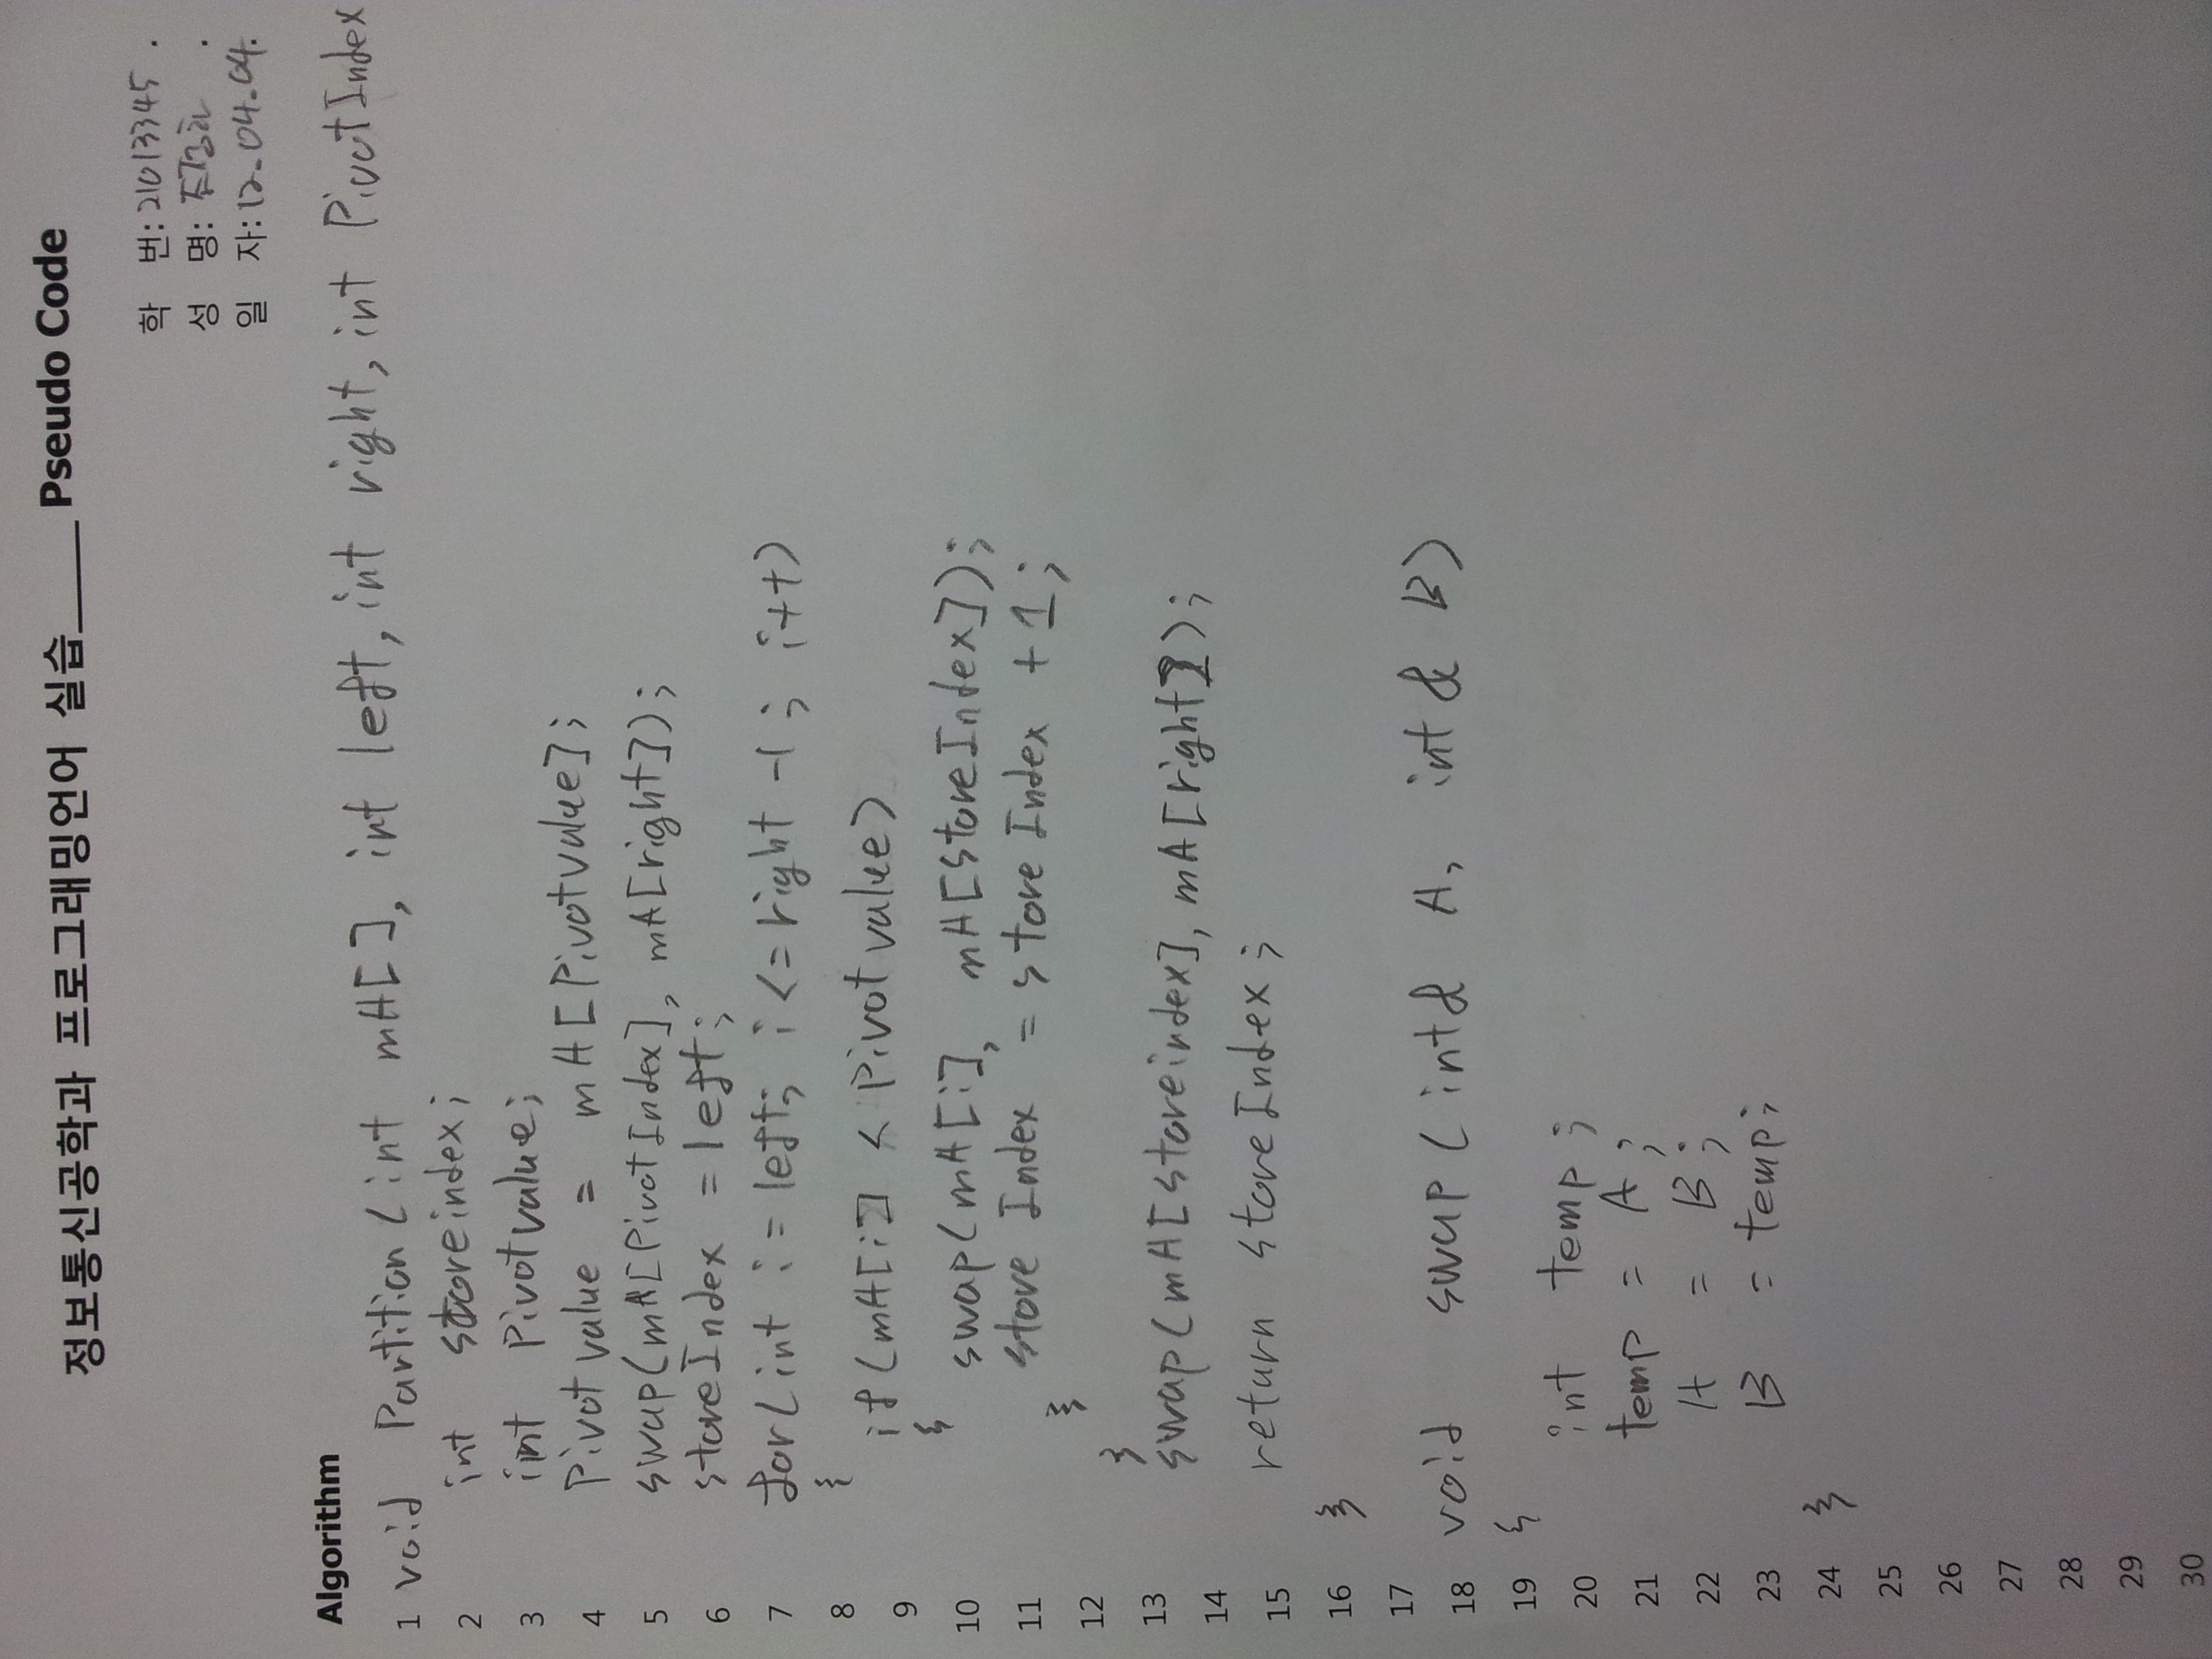 정보통신공학과 프로그래밍언어 실습____Pseudo Code
학 번:21013345.
성 명: .
일 자:12.04.04.
Algorithm
1 void Partition(int mA[], int left, int right, int PivotIndex
2 int storeindex;
3 int Pivotvalue;
4 Pivotvalue = mA[Pivotvalue];
5 swap(mA[PivotIndex], mA[right]);
6 storeIndex = left;
7 for(int i = left; i <= right -1; i++)
8 {
9 if(mA[i] < Pivotvalue)
{
10 swap(mA[i], mA[storeIndex]);
11 store Index = store Index + 1;
12 }
13 }
14 swap(mA[storeindex], mA[right]);
15 return storeIndex;
16 }
17
18 void swap(int& A, int& B)
19 {
20 int temp;
21 temp = A;
22 A = B;
23 B = temp;
24 }
25
26
27
28
29
30